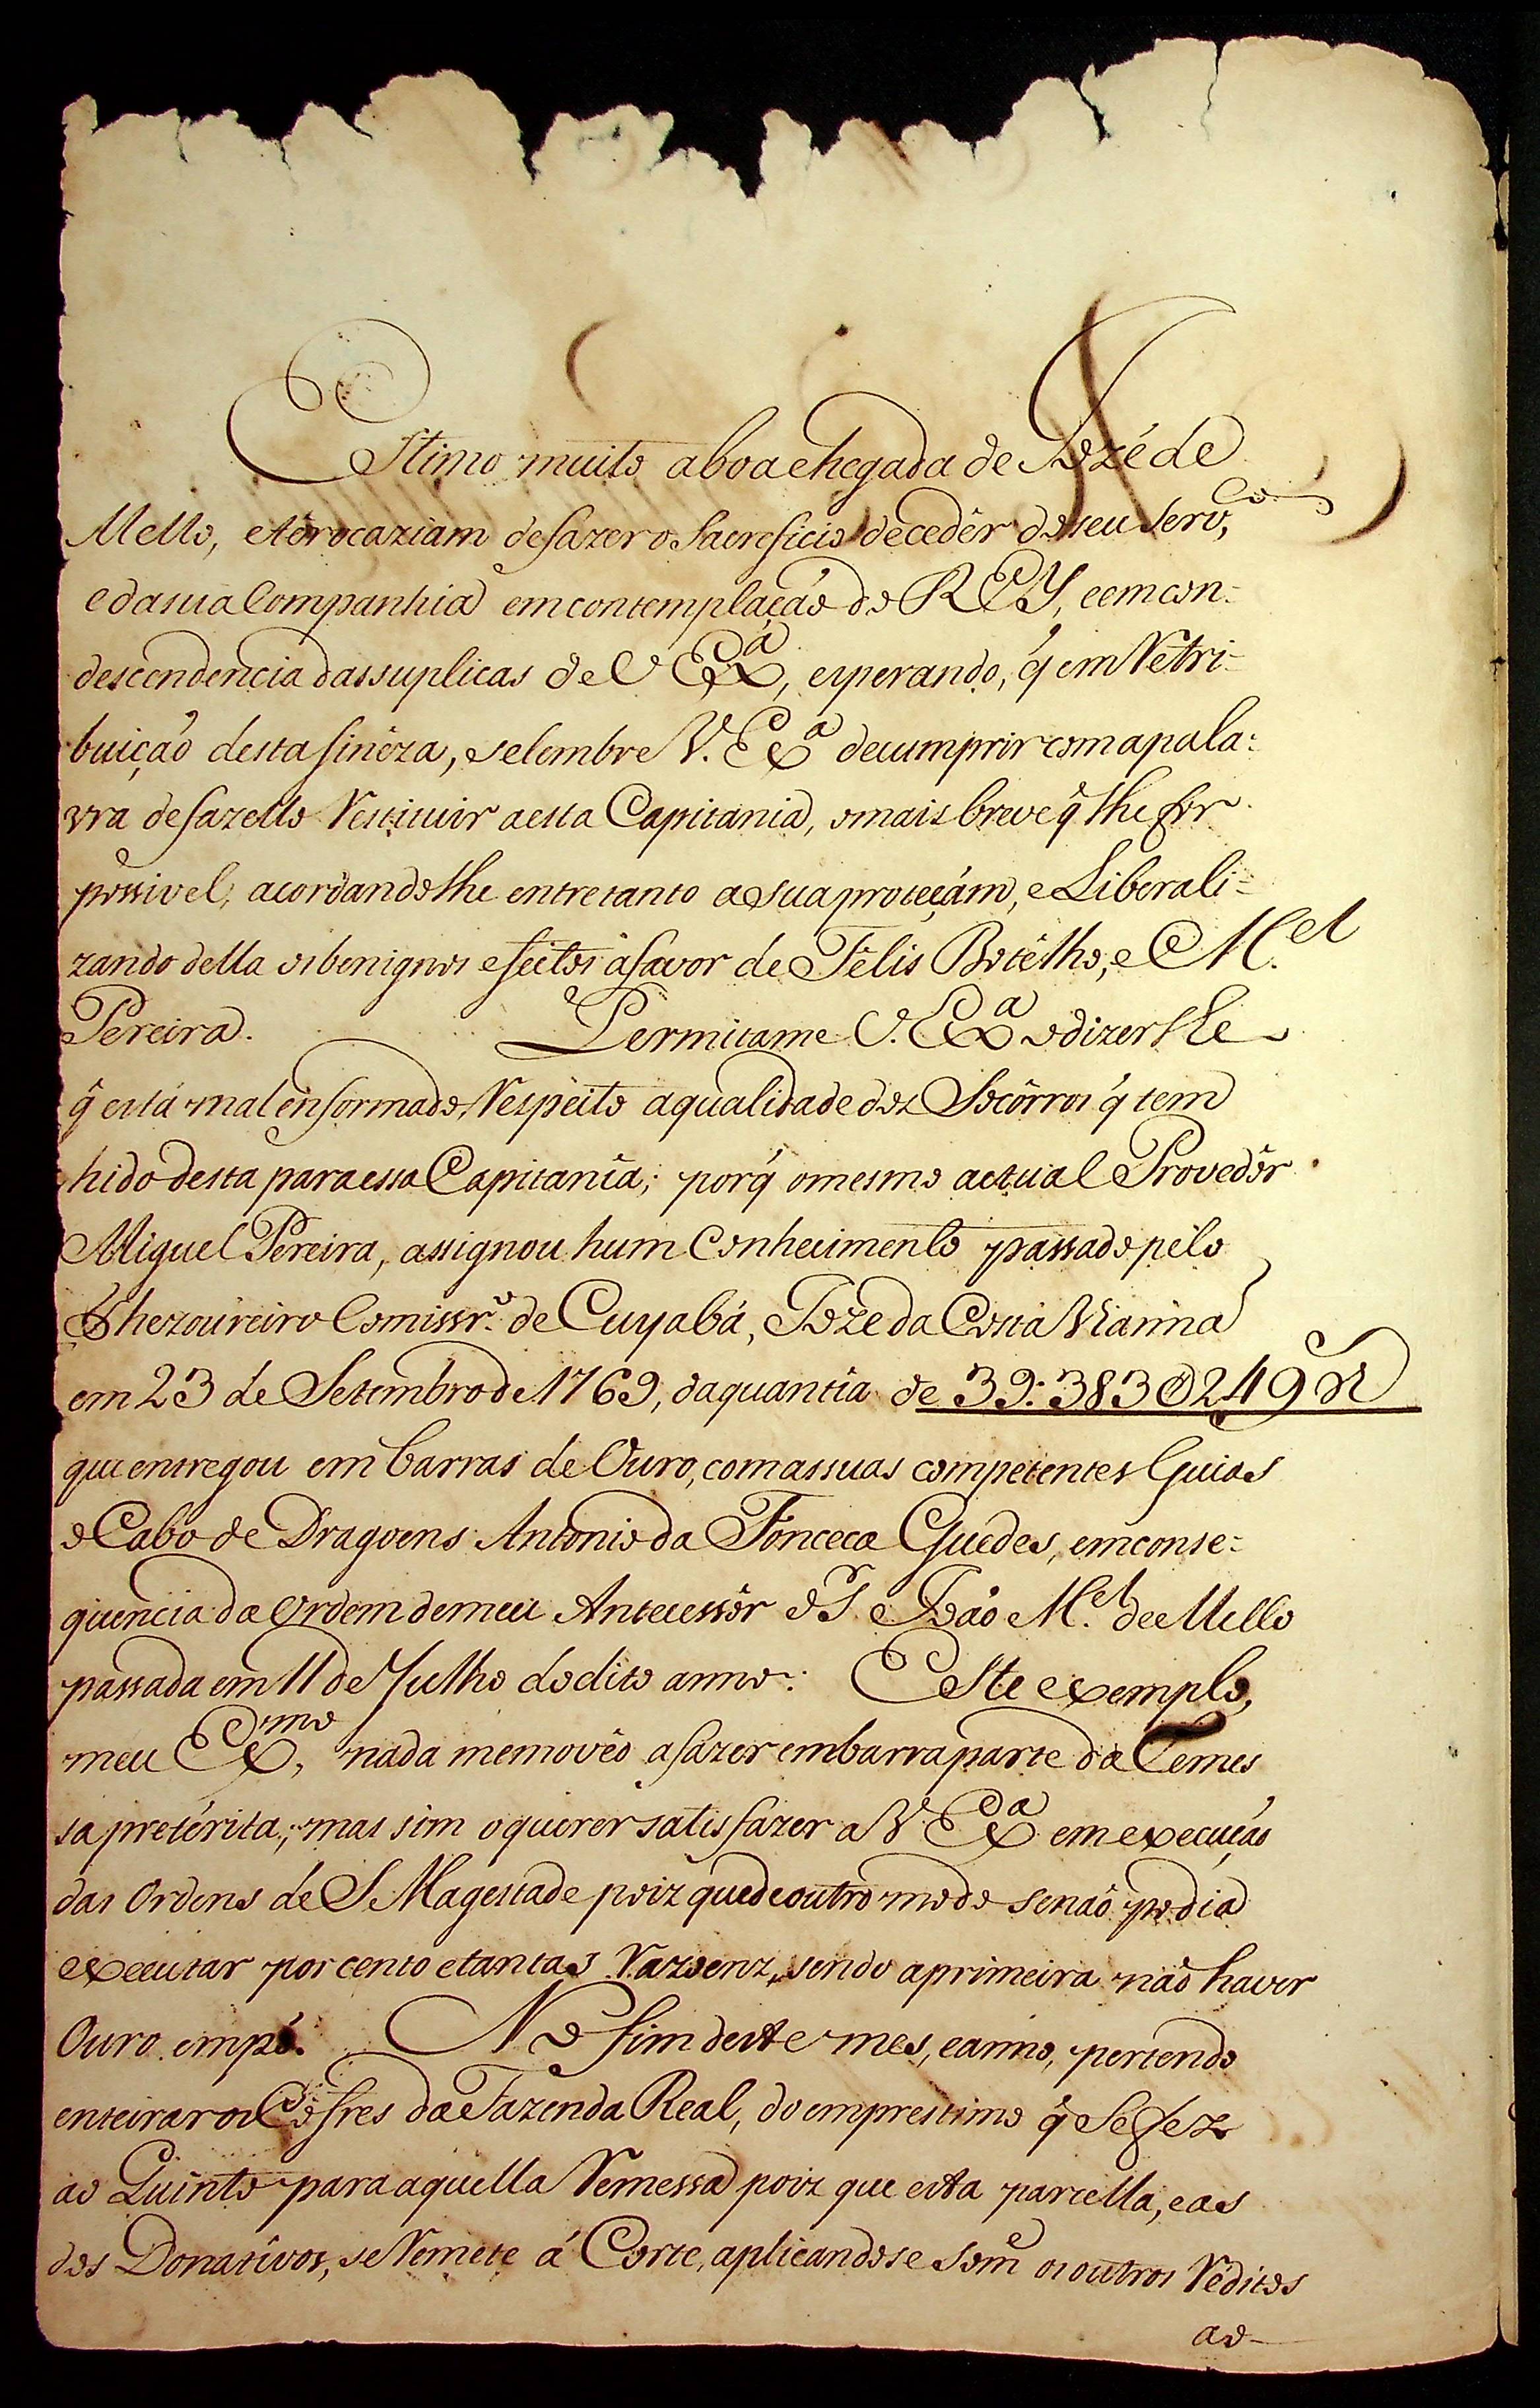 Estimo muito aboachegada de Jozé de
Mello, eter ocaziam defazer o Sacreficio decedêr do seu serv,ᶜᵒ
edasua Companhia em contemplação do REY, eem con=
descendencia das suplicas de V Exᵃ, esperando, q̃ em Retri=
buição desta finêza, selembre V. Exᵃ decumprir com apala=
vra defazello Restituir aesta Capitania, omais breve q̃ lhe for
possivel, acordandolhe entretanto asua proteçám, e Liberali=
zando della os benignos efeitos áfavor de Félis Botêlho, e M.ᵉˡ
Pereira. Permitame V. Exᵃ odizerlhe
q̃ está mal enformado, Respeito aqualidade dos Socôrros q̃ tem
hido desta para essa Capitanîa; porq̃ omesmo actual Provedôr
Miguel Pereira, assignou hum Conhecimento passado pêlo
Thezoureiro Comissr.º de Cuyabá, Joze da Costa Vianna
em 23 de Setembro de 1769, daquantia de 39:383@249 rˢ
que entregou em barras de Ouro, com assuas competentes Guias
o Cabo de Dragoens Antonio da Fonceca Guedes, em conse=
quencia da Ordem demeu Antecessôr o Sʳ João M.ᵉˡ de Mello
passada em 11 de Julho do dito anno: Este exemplo,
meu Exᵐᵒ, nada memovêo afazer embarra parte da Remes
sa pretérita; mas sim oquerer satisfazer a V. Exᵃ em execução
das Ordens de S Magestade poiz quedeoutro modo senaõ podia
executar por cento etantas Razoenz, sendo aprimeira naõ haver
Ouro empó. No fim deste mes, eanno, pertendo
enteirar os Cofres da Fazenda Real, do emprestimo q̃ Se fez
ao Quinto para aquella Remessa poiz que esta parcella, e as
dos Donativos, se Remete á Corte, aplicandose somᵉ os outros Réditos
ao-